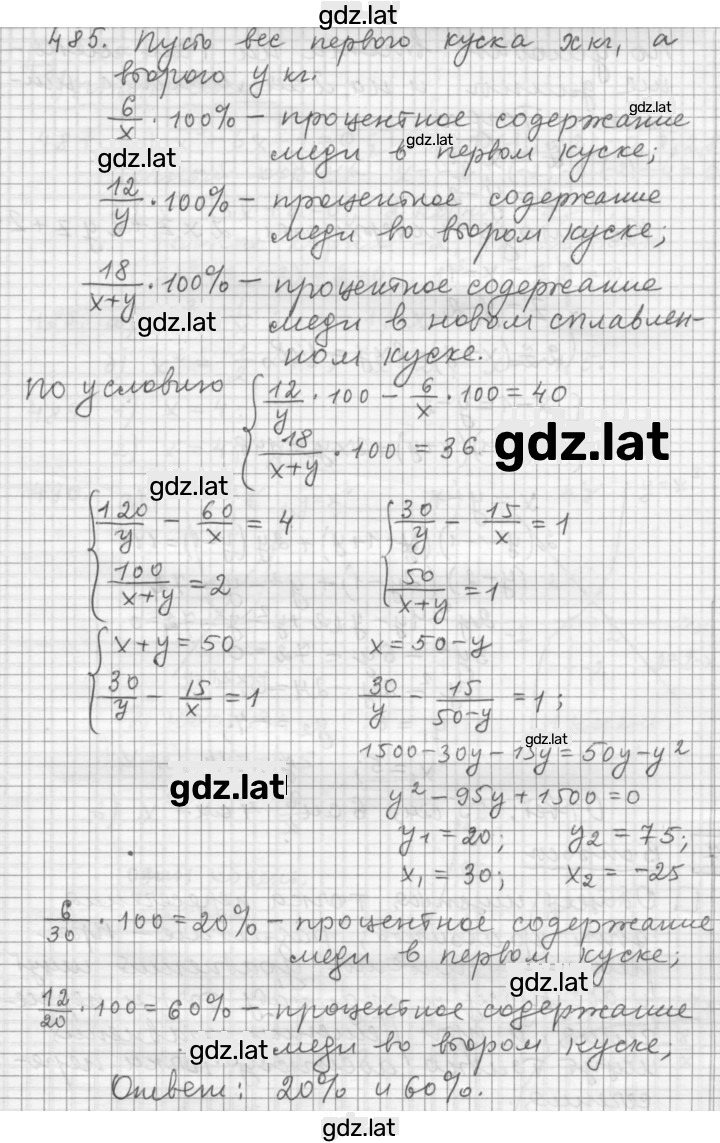 gdz.lat
485. Пусть вес первого куска x кг, а
второго y кг.
6/x · 100% – процентное содержание
gdz.lat
меди в первом куске;
gdz.lat
gdz.lat
12/y · 100% – процентное содержание
меди во втором куске;
18/(x+y) · 100% – процентное содержание
меди в новом сплавлен-
gdz.lat
ном куске.
по условию { 12/y · 100 – 6/x · 100 = 40
18/(x+y) · 100 = 36
gdz.lat
gdz.lat
{ 120/y – 60/x = 4 { 30/y – 15/x = 1
100/(x+y) = 2 50/(x+y) = 1
{ x+y = 50 x = 50–y
30/y – 15/x = 1 30/y – 15/(50–y) = 1;
gdz.lat
1500–30y–15y = 50y–y²
gdz.lat
y² – 95y + 1500 = 0
y₁ = 20; y₂ = 75;
x₁ = 30; x₂ = –25
6/30 · 100 = 20% – процентное содержание
меди в первом куске;
gdz.lat
12/20 · 100 = 60% – процентное содержание
gdz.lat меди во втором куске;
Ответ: 20% и 60%.
gdz.lat